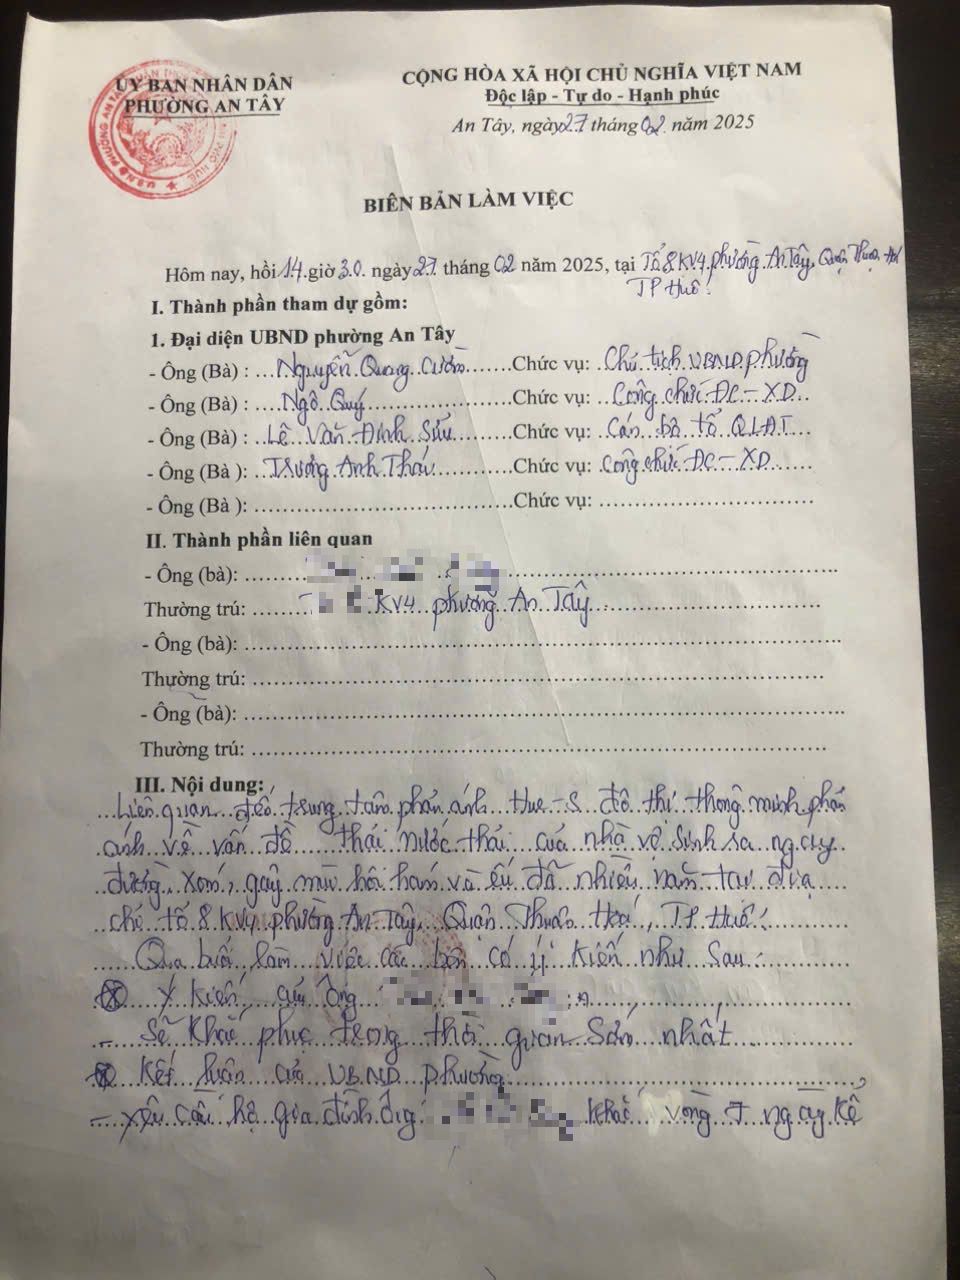 ỦY BAN NHÂN DÂN
PHƯỜNG AN TÂY
CỘNG HÒA XÃ HỘI CHỦ NGHĨA VIỆT NAM
Độc lập - Tự do - Hạnh phúc
An Tây, ngày 27 tháng 02 năm 2025
BIÊN BẢN LÀM VIỆC
Hôm nay, hồi 14 giờ 30 ngày 27 tháng 02 năm 2025, tại Tổ 8 KV4 phường An Tây, Quận Thuận Hoá
TP Huế
I. Thành phần tham dự gồm:
1. Đại diện UBND phường An Tây
- Ông (Bà) : Nguyễn Quang Cường Chức vụ: Chủ tịch UBND phường
- Ông (Bà) : Ngô Quý Chức vụ: Công chức ĐC - XD
- Ông (Bà) : Lê Văn Đình Sửu Chức vụ: Cán bộ tổ QLĐT
- Ông (Bà ) : Trương Anh Thái Chức vụ: Công chức ĐC - XD
- Ông (Bà ): Chức vụ:
II. Thành phần liên quan
- Ông (bà):
Thường trú: KV4 phường An Tây
- Ông (bà):
Thường trú:
- Ông (bà):
Thường trú:
III. Nội dung:
Liên quan đến trung tâm phản ánh Hue-S đô thị thông minh phản
ánh về vấn đề thải nước thải của nhà vệ sinh ra ngay
đường xóm, gây mùi hôi hám và đã nhiều năm tại địa
chỉ tổ 8 KV4 phường An Tây, Quận Thuận Hoá, TP Huế.
Qua buổi làm việc các bên có ý kiến như sau:
Ý kiến của ông
- Sẽ khắc phục trong thời gian sớm nhất
Kết luận của UBND phường
- Yêu cầu hộ gia đình ông khắc vòng 7 ngày kể